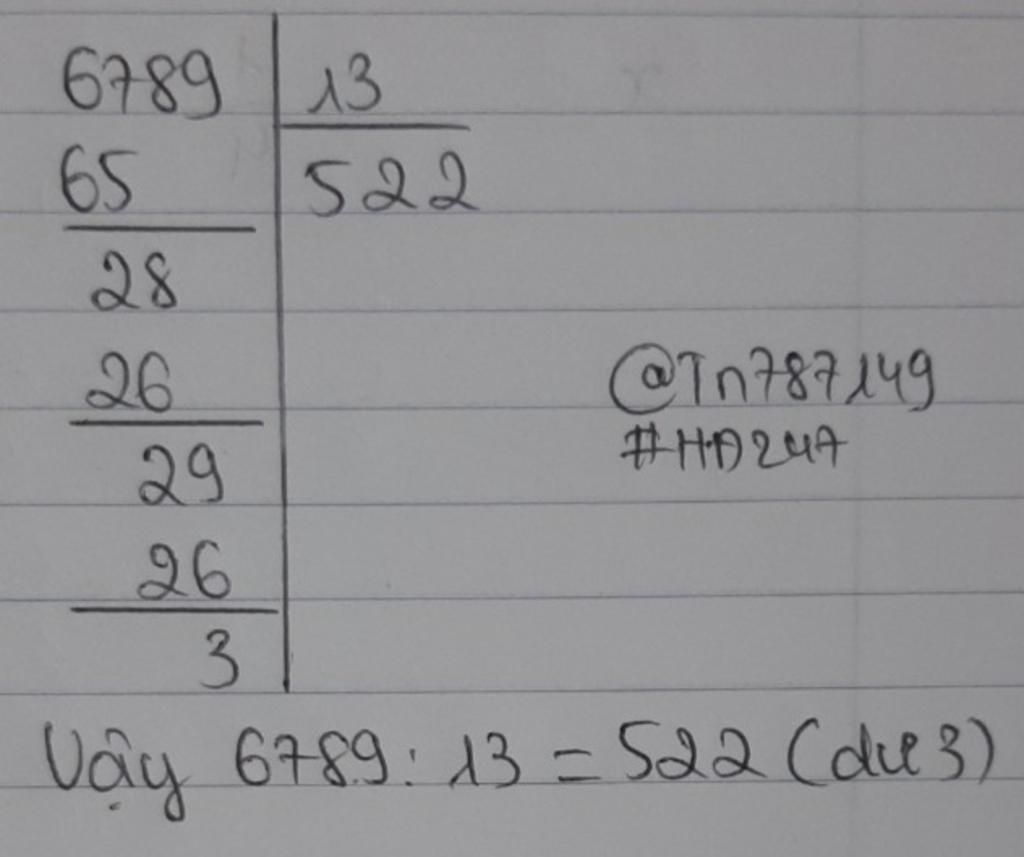 6789 13
65 522
28
26
@Tn787149
29
#HD247
26
3
Vậy 6789 : 13 = 522 (dư 3)